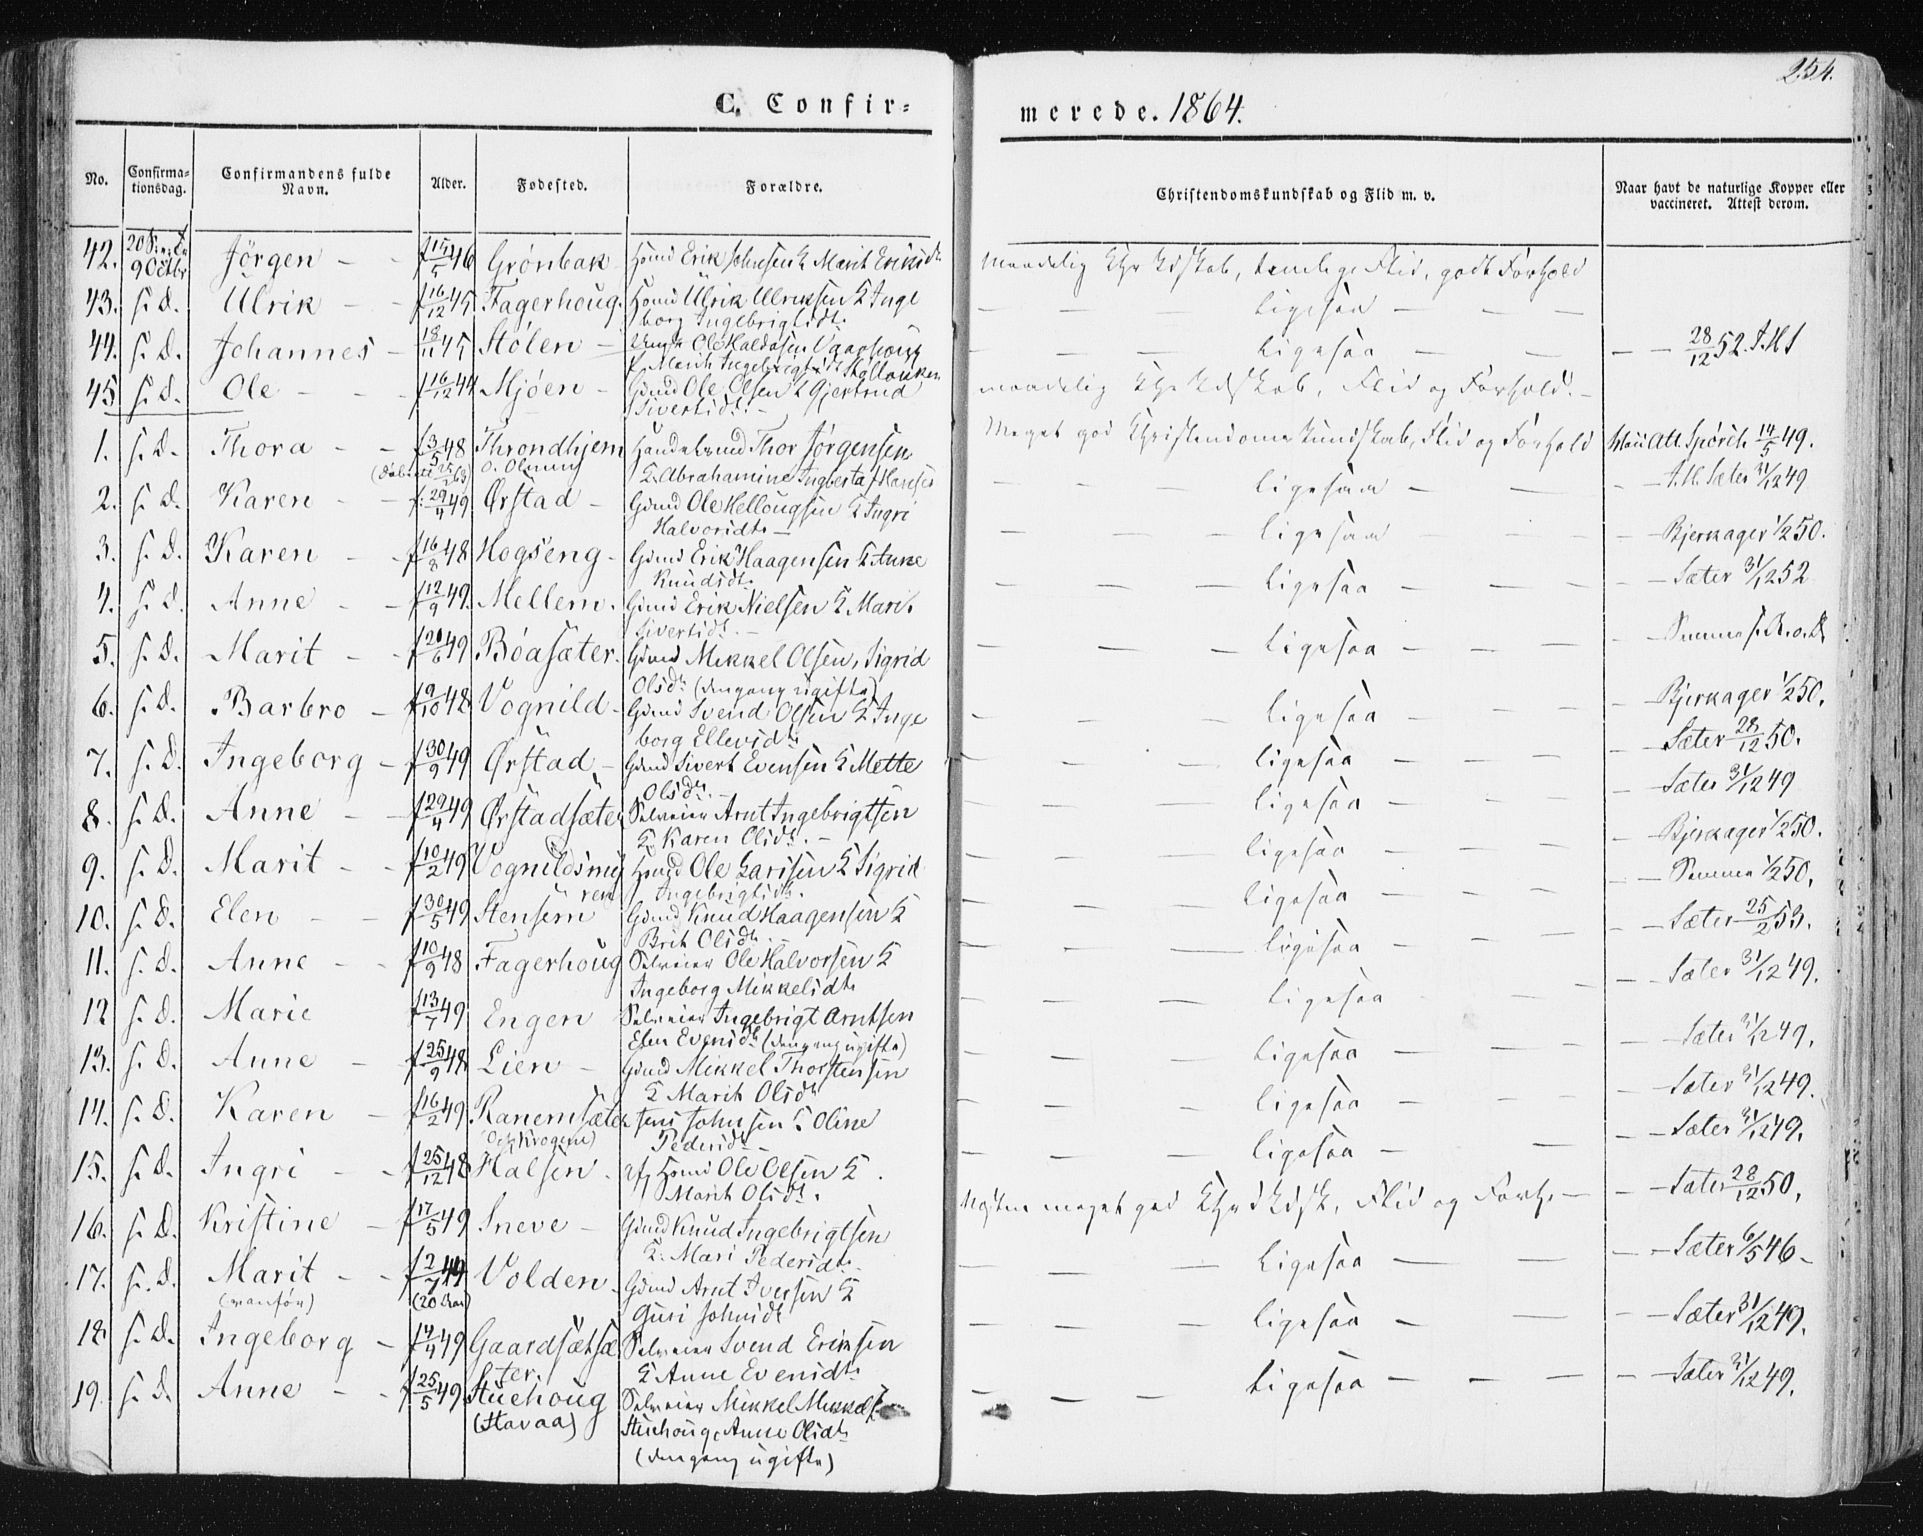 254.
C. Confir=
merede. 1864.
No. Confirma-tionsdag. Confirmandens fulde Navn. Alder. Fødested. Forældre. Christendomskundskab og Flid m. v. Naar havt de naturlige Kopper eller vaccineret. Attest derom.
42. 9 Octbr Jörgen - - f 15/5 46 Grönbak Hsmd Erik Johnsen & Marit Eriksdt maadelig Chr Kdskab, temlige Flid, godt Forhold
43. s. D. Ulrik - - f 16/12 45 Fagerhoug. Hsmd Ulrik Ulriksen & Inge
borg Ingebrigtsdt. — — — ligesaa — —
44. s. D. Johannes - 18/11 45 Stölen - Ole Haldosen
& Marit Ingebrigtsdt — — — ligesaa — — — 28/12 52.
45 s. D. Ole - - - f 16/12 44 Mjöen - Gdmd Ole Olsen & Gjertrud
Sivertsdt. - maadelig Chr Kdskab, Flid og Forhold. -
1. s. D. Thora - - f 3/5 48 Throndhjem Handelsmd Thor Jörgensen Meget god Christendomskundskab, Flid og Forhold Att. Spörck 14/5 49.
& Abrahamine Ingberta Hansen
2. s. D. Karen - - f. 29/4 49 Ørstad - Gdmd Ole Hellougsen & Ingri
Halvorsdt. - ligesaa — Sæter 31/12 49
3. s. D. Karen - - f 16/8 48 Hogseng - Gdmd Erik Haagensen & Anne
Knudsdt. — — — ligesaa — — — Bjerkager 1/2 50.
4. s. D. Anne - - f 12/9 49. Mellem. Gdmd Erik Nielsen & Marit
Sivertsdt. - — — — ligesaa — — — Sæter 31/12 52
5. s. D. Marit - - f 20/6 49 Böasæter. Gdmd Mikkel Olsen, Sigrid
Olsdt (dengang ugifte) — — — ligesaa — — — Samme
6. s. D. Barbro - f 9/10 48. Vognild - Gdmd Svend Olsen & Inge
borg Ellevsdt. — — — ligesaa — — — Bjerkager 1/2 50.
7. s. D. Ingeborg - f 30/9 49 Ørstad - Gdmd Sivert Evensen & Mette
Olsdt. - — — — ligesaa — — — Sæter 28/12 50.
8. s. D. Anne - - f 29/4 49 Ørstadsæter Selveier Arnt Ingebrigtsen
& Karen Olsdt. - — — — ligesaa — — — Sæter 31/12 49
9. s. D. Marit - - f 10/2 49 Vognildsmy
ren Hsmd Ole Larssen & Sigrid
Ingebrigtsdt. — — — ligesaa — — — Bjerkager 1/2 50.
10. s. D. Elen - - f 30/5 49 Stensem Gdmd Knud Haagensen &
Brit Olsdt. — — — ligesaa — — — Samme 1/2 50.
11. s. D. Anne - - f 10/9 48 Fagerhoug Selveier Ole Halvorsen &
Ingeborg Mikkelsdt. — — — ligesaa — — — Sæter 25/2 53.
12 s. D. Marie f 13/7 49 Engen Selveier Ingebrigt Arntsen
Elen Evensdt. (dengang ugifte) — — — ligesaa — — — Sæter 31/12 49.
13. s. D. Anne - f 25/9 48 Lien - Gdmd Mikkel Thorstensen
& Marit Olsdt — — — ligesaa — — — Sæter 31/12 49.
14. s. D. Karen - f 16/2 49. Ranemsæter Jens Johnsen & Oline
Pedersdt. - — — — ligesaa — — — Sæter 31/12 49.
15. s. D. Ingri - - f 25/12 48 Halsen. Hsmd Ole Olsen &
Marit Olsdt. — — — ligesaa — — — Sæter 31/12 49.
16. s. D. Kristine - f 17/5 49 Sneve - Gdmd Knud Ingebrigtsen
& Mari Pedersdt. Næsten meget god Chrdkdsk, Flid og Forh. — Sæter 28/12 50.
17. s. D. Marit - - f 2/7 44 Volden - Gdmd Arnt Iversen &
(vanför) (20 Aar) Guri Johnsdt — — — ligesaa — — — Sæter 6/5 46 -
18 s. D. Ingeborg - f 4/4 49 Gaardsætsæ
ter. Selveier Svend Eriksen
& Anne Evensdt. — — — ligesaa — — — Sæter 31/12 49.
19. s. D. Anne - - f 25/5 49 Stuehoug
(Stavaa) Selveier Mikkel Mikkels.
Stuehoug, Anne Olsdt.
(dengang ugifte) — — — ligesaa — — — Sæter 31/12 49.